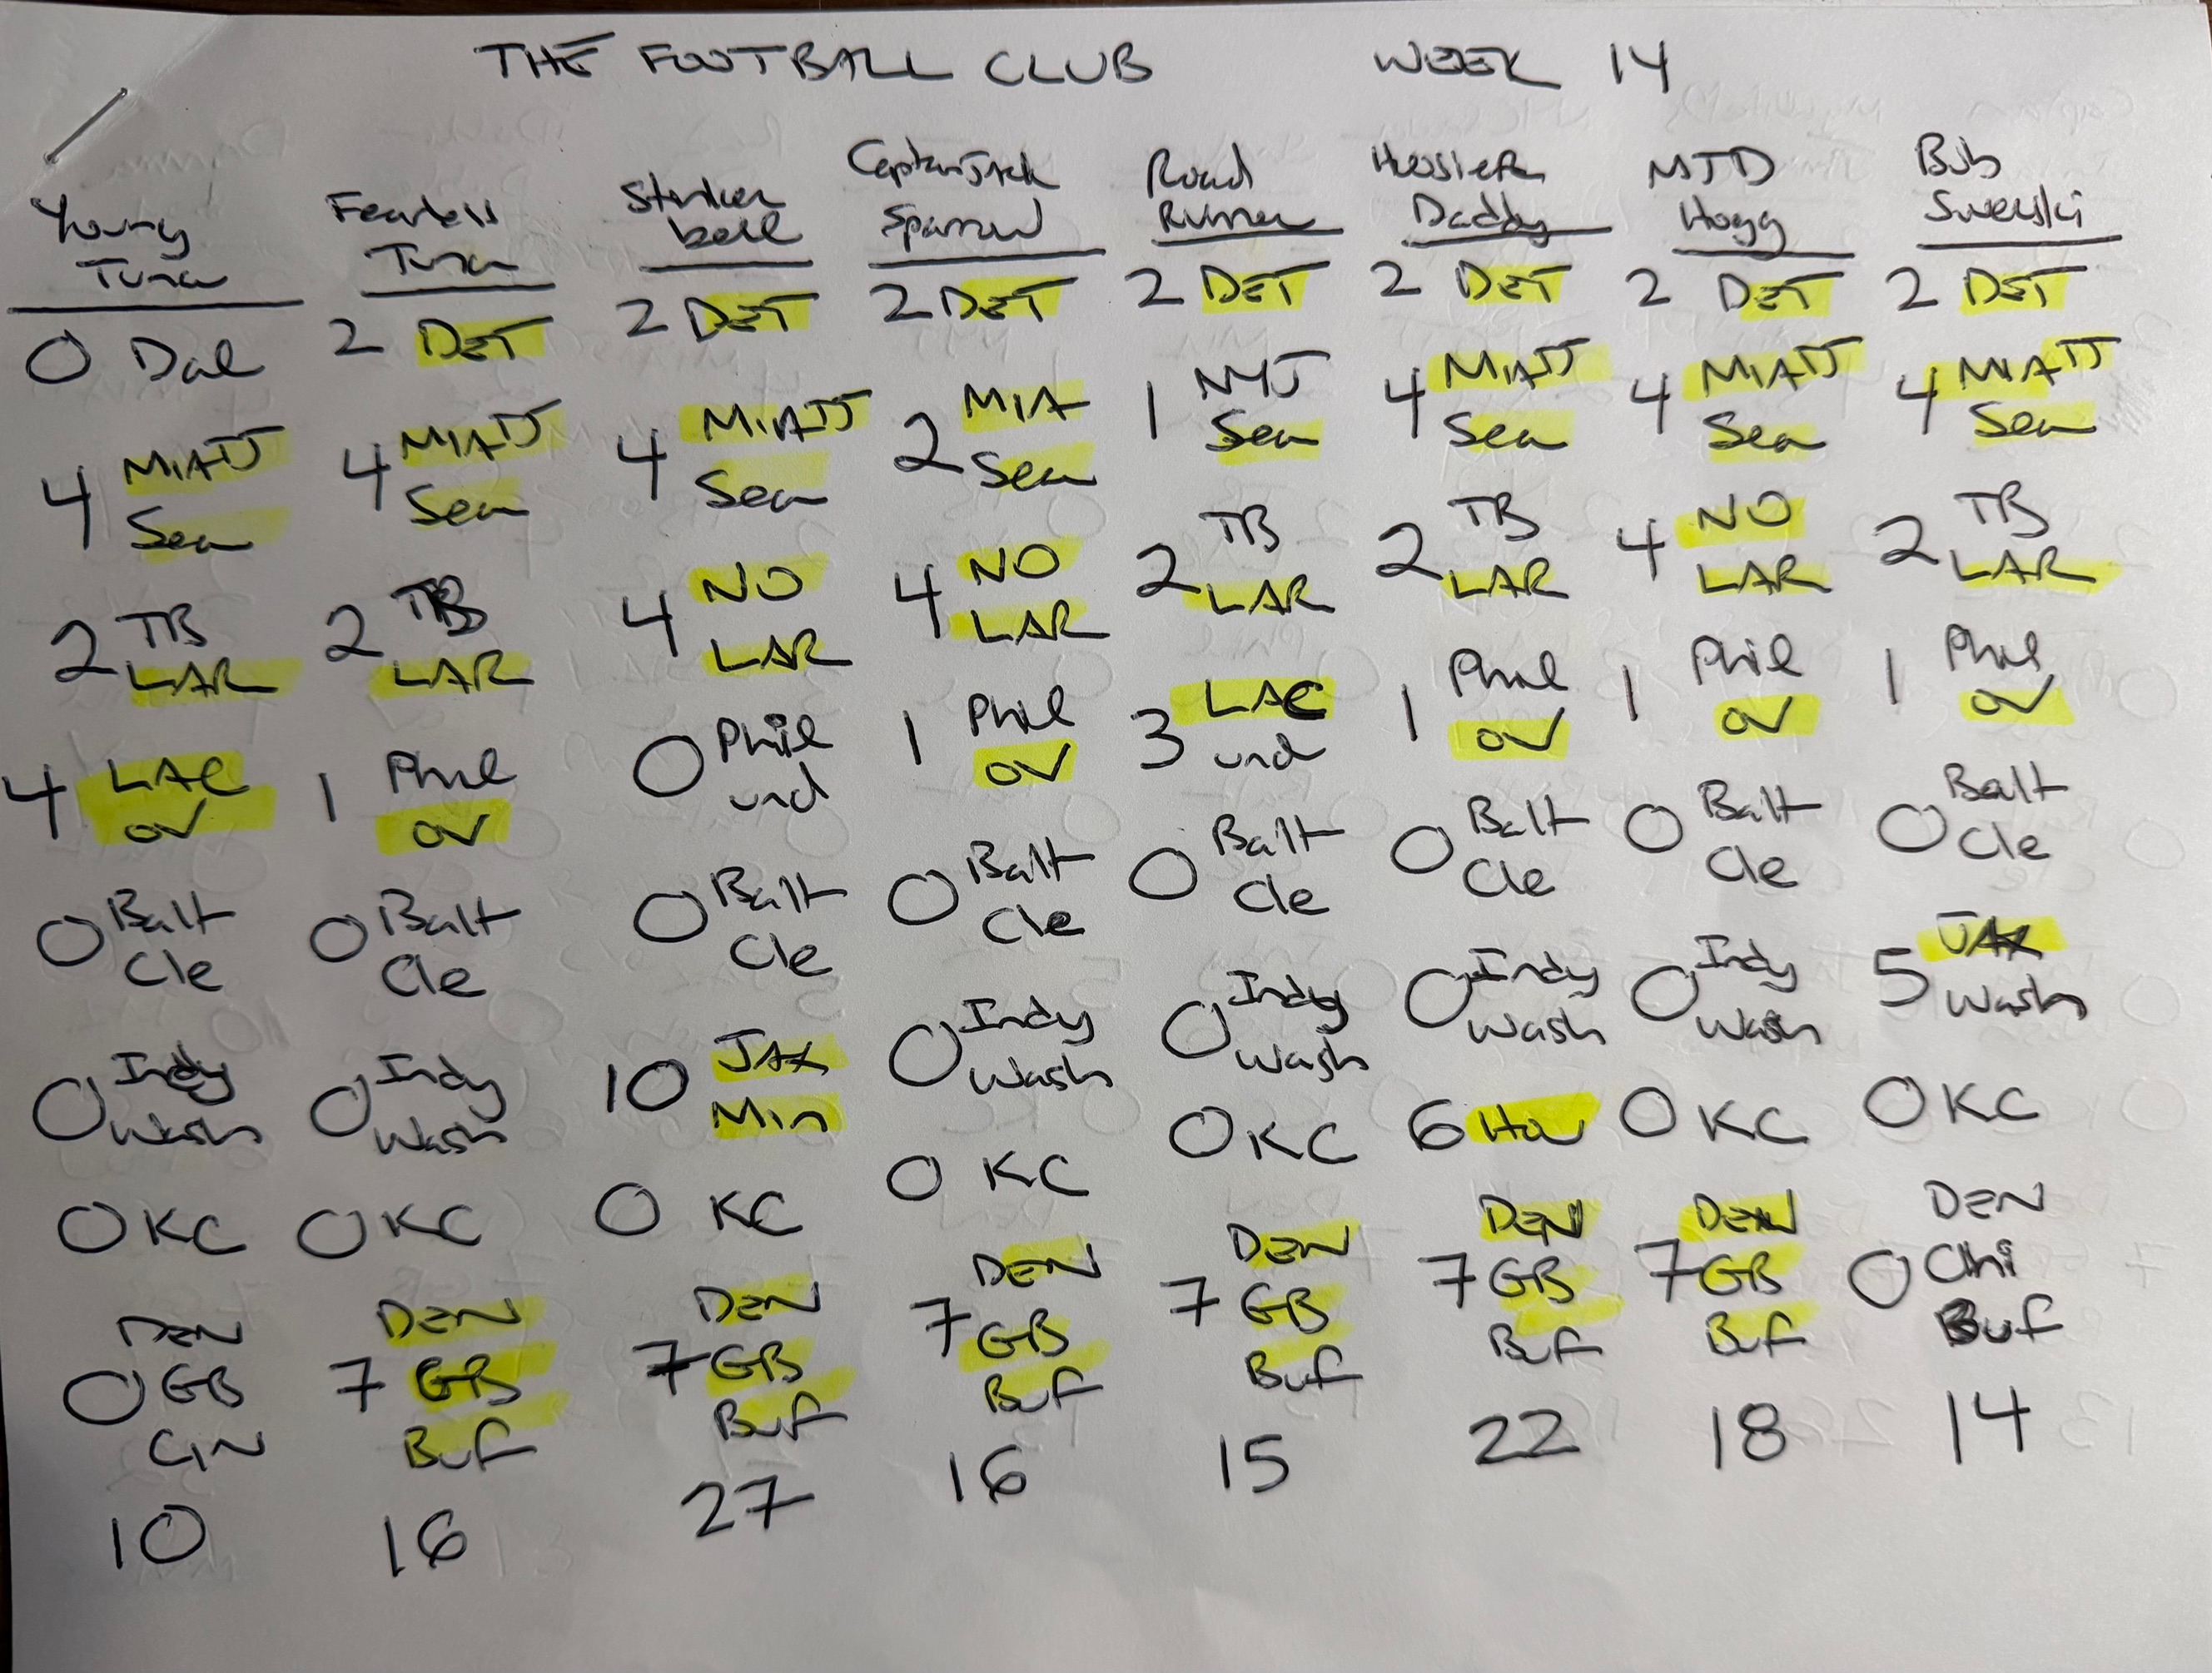 THE FOOTBALL CLUB WEEK 14
Young
Tuna
0 Dal
4 MIATT
Sea
2 TB
LAR
4 LAC
OV
0 Balt
Cle
0 Indy
Wash
0 KC
DEN
0 GB
CIN
10
Fearless
Tuna
2 DET
4 MIATT
Sea
2 TB
LAR
1 Phil
OV
0 Balt
Cle
0 Indy
Wash
0 KC
DEN
7 GB
Buf
16
2 DET
4 MIATT
Sea
4 NO
LAR
0 Phil
und
0 Balt
Cle
10 JAX
Min
0 KC
DEN
7 GB
Buf
27
Captain Jack
Sparrow
2 DET
MIA
2 Sea
4 NO
LAR
1 Phil
OV
0 Balt
Cle
0 Indy
Wash
0 KC
DEN
7 GB
Buf
16
Road
Runner
2 DET
1 NYJ
Sea
2 TB
LAR
3 LAC
und
0 Balt
Cle
0 Indy
Wash
0 KC
DEN
7 GB
Buf
15
Hoosier
Daddy
2 DET
4 MIATT
Sea
2 TB
LAR
1 Phil
OV
0 Balt
Cle
0 Indy
Wash
6 Hou
DEN
7 GB
Buf
22
MJD
Hogg
2 DET
4 MIATT
Sea
4 NO
LAR
1 Phil
OV
0 Balt
Cle
0 Indy
Wash
0 KC
DEN
7 GB
Buf
18
Bob
Swerski
2 DET
4 MIATT
Sea
2 TB
LAR
1 Phil
OV
0 Balt
Cle
5 JAX
Wash
0 KC
DEN
0 Chi
Buf
14